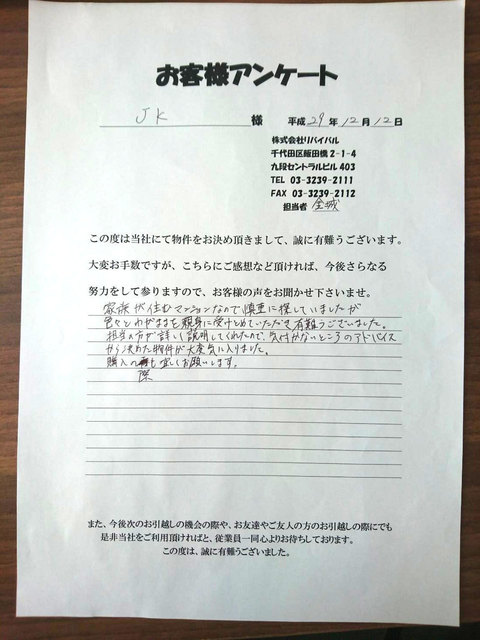 お客様アンケート
JK 様 平成 29 年 12 月 12 日
株式会社リバイバル
千代田区飯田橋2-1-4
九段セントラルビル403
TEL 03-3239-2111
FAX 03-3239-2112
担当者 金城
この度は当社にて物件をお決め頂きまして、誠に有難うございます。
大変お手数ですが、こちらにご感想など頂ければ、今後さらなる
努力をして参りますので、お客様の声をお聞かせ下さいませ。
家族が住むマンションなので慎重に探していましたが
色々とわがままを親身に受けとめていただき有難うございました。
担当の方が詳しく説明してくれたので、気付かないところのアドバイス
から決めた物件が大変気に入りました。
購入の際も宜しくお願いします。
また、今後次のお引越しの機会の際や、お友達やご友人の方のお引越しの際にでも
是非当社をご利用頂ければと、従業員一同心よりお待ちしております。
この度は、誠に有難うございました。